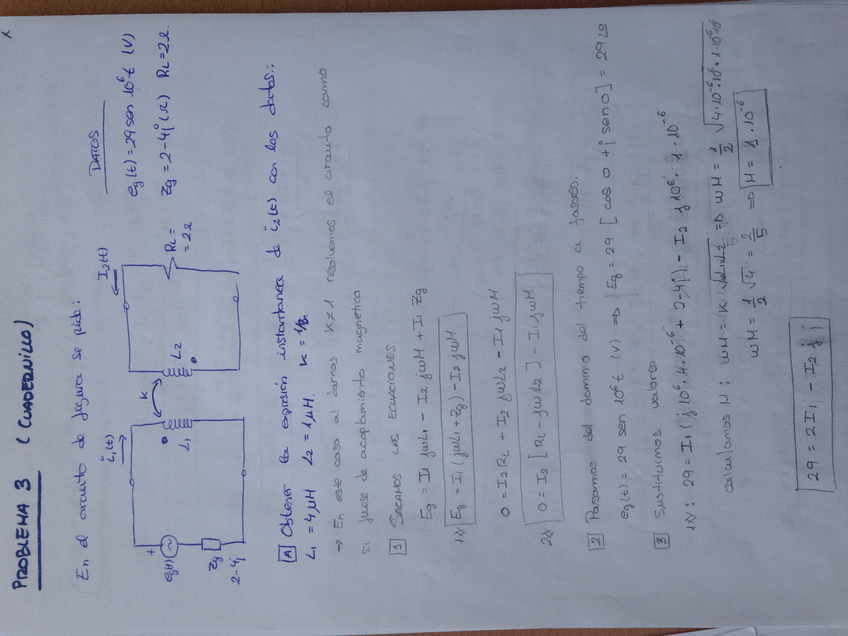 PROBLEMA 3 (CUADERNILLO)
En el circuito de figura se pide:
DATOS
eg(t) = 29 sen 10⁶t (V)
Zg = 2-4j (Ω) RL = 2Ω
i1(t)
K
I2(t)
+
eg(t)
Zg
2-4j
L1
L2
RL =
= 2Ω
A Obtener la expresión instantánea de i2(t) con los datos:
L1 = 4μH L2 = 1μH. K = 1/2.
→ En este caso al darnos K≠1 resolvemos el circuito como
si fuese de acoplamiento magnético
1 SACAMOS LAS ECUACIONES
Eg = I1 jωL1 - I2 jωM + I1 Zg
1x Eg = I1(jωL1 + Zg) - I2 jωM
0 = I2RL + I2 jωL2 - I1 jωM
2x 0 = I2 [RL - jωL2] - I1 jωM
2 Pasamos del dominio del tiempo a fasores.
eg(t) = 29 sen 10⁶t (V) => Eg = 29 [cos 0 + j sen 0] = 29∠0
3 Sustituimos valores
1x: 29 = I1(j10⁶·4·10⁻⁶ + 2-4j) - I2 j10⁶·1·10⁻⁶
calculamos M: ωM = K
=> ωM = 1/2
ωM = 1/2 √4 =
=> M = 1·10⁻⁶
29 = 2I1 - I2 j